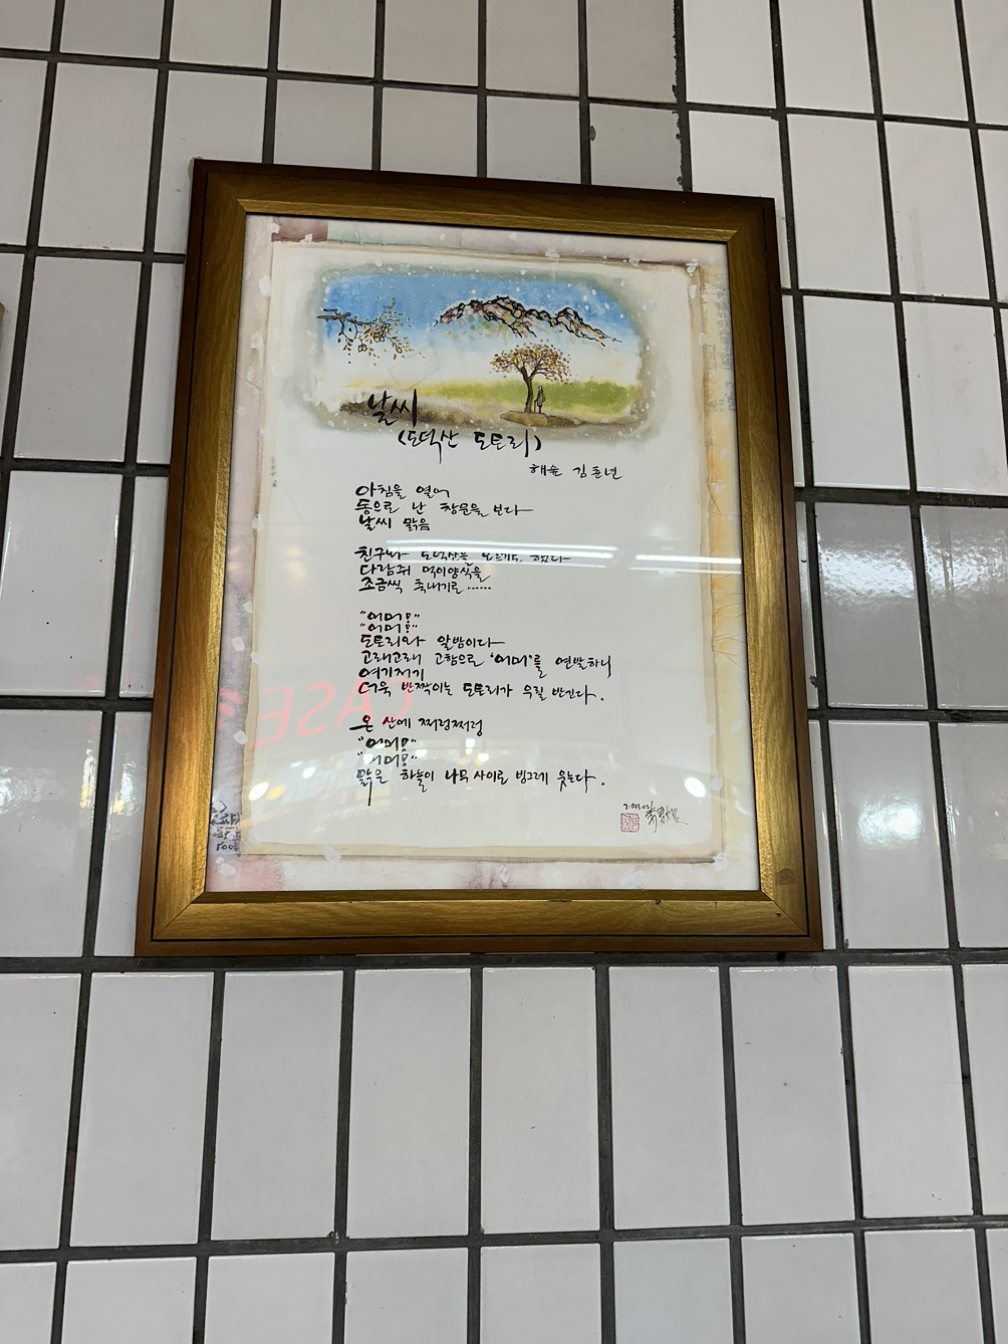 날씨
(도덕산 도토리)
해솔 김준년
아침을 열어
동으로 난 창문을 보다
날씨 맑음
친구와 도덕산을 오르기로 했다
다람쥐 먹이양식을
조금씩 축내기로 ......
"어머!"
"어머!"
도토리와 알밤이다
고래고래 고함으로 '어머'를 연발하니
여기저기
더욱 반짝이는 도토리가 우릴 반긴다.
온 산에 쩌렁쩌렁
"어머!"
"어머!"
맑은 하늘이 나무 사이로 빙그레 웃는다.
CASE